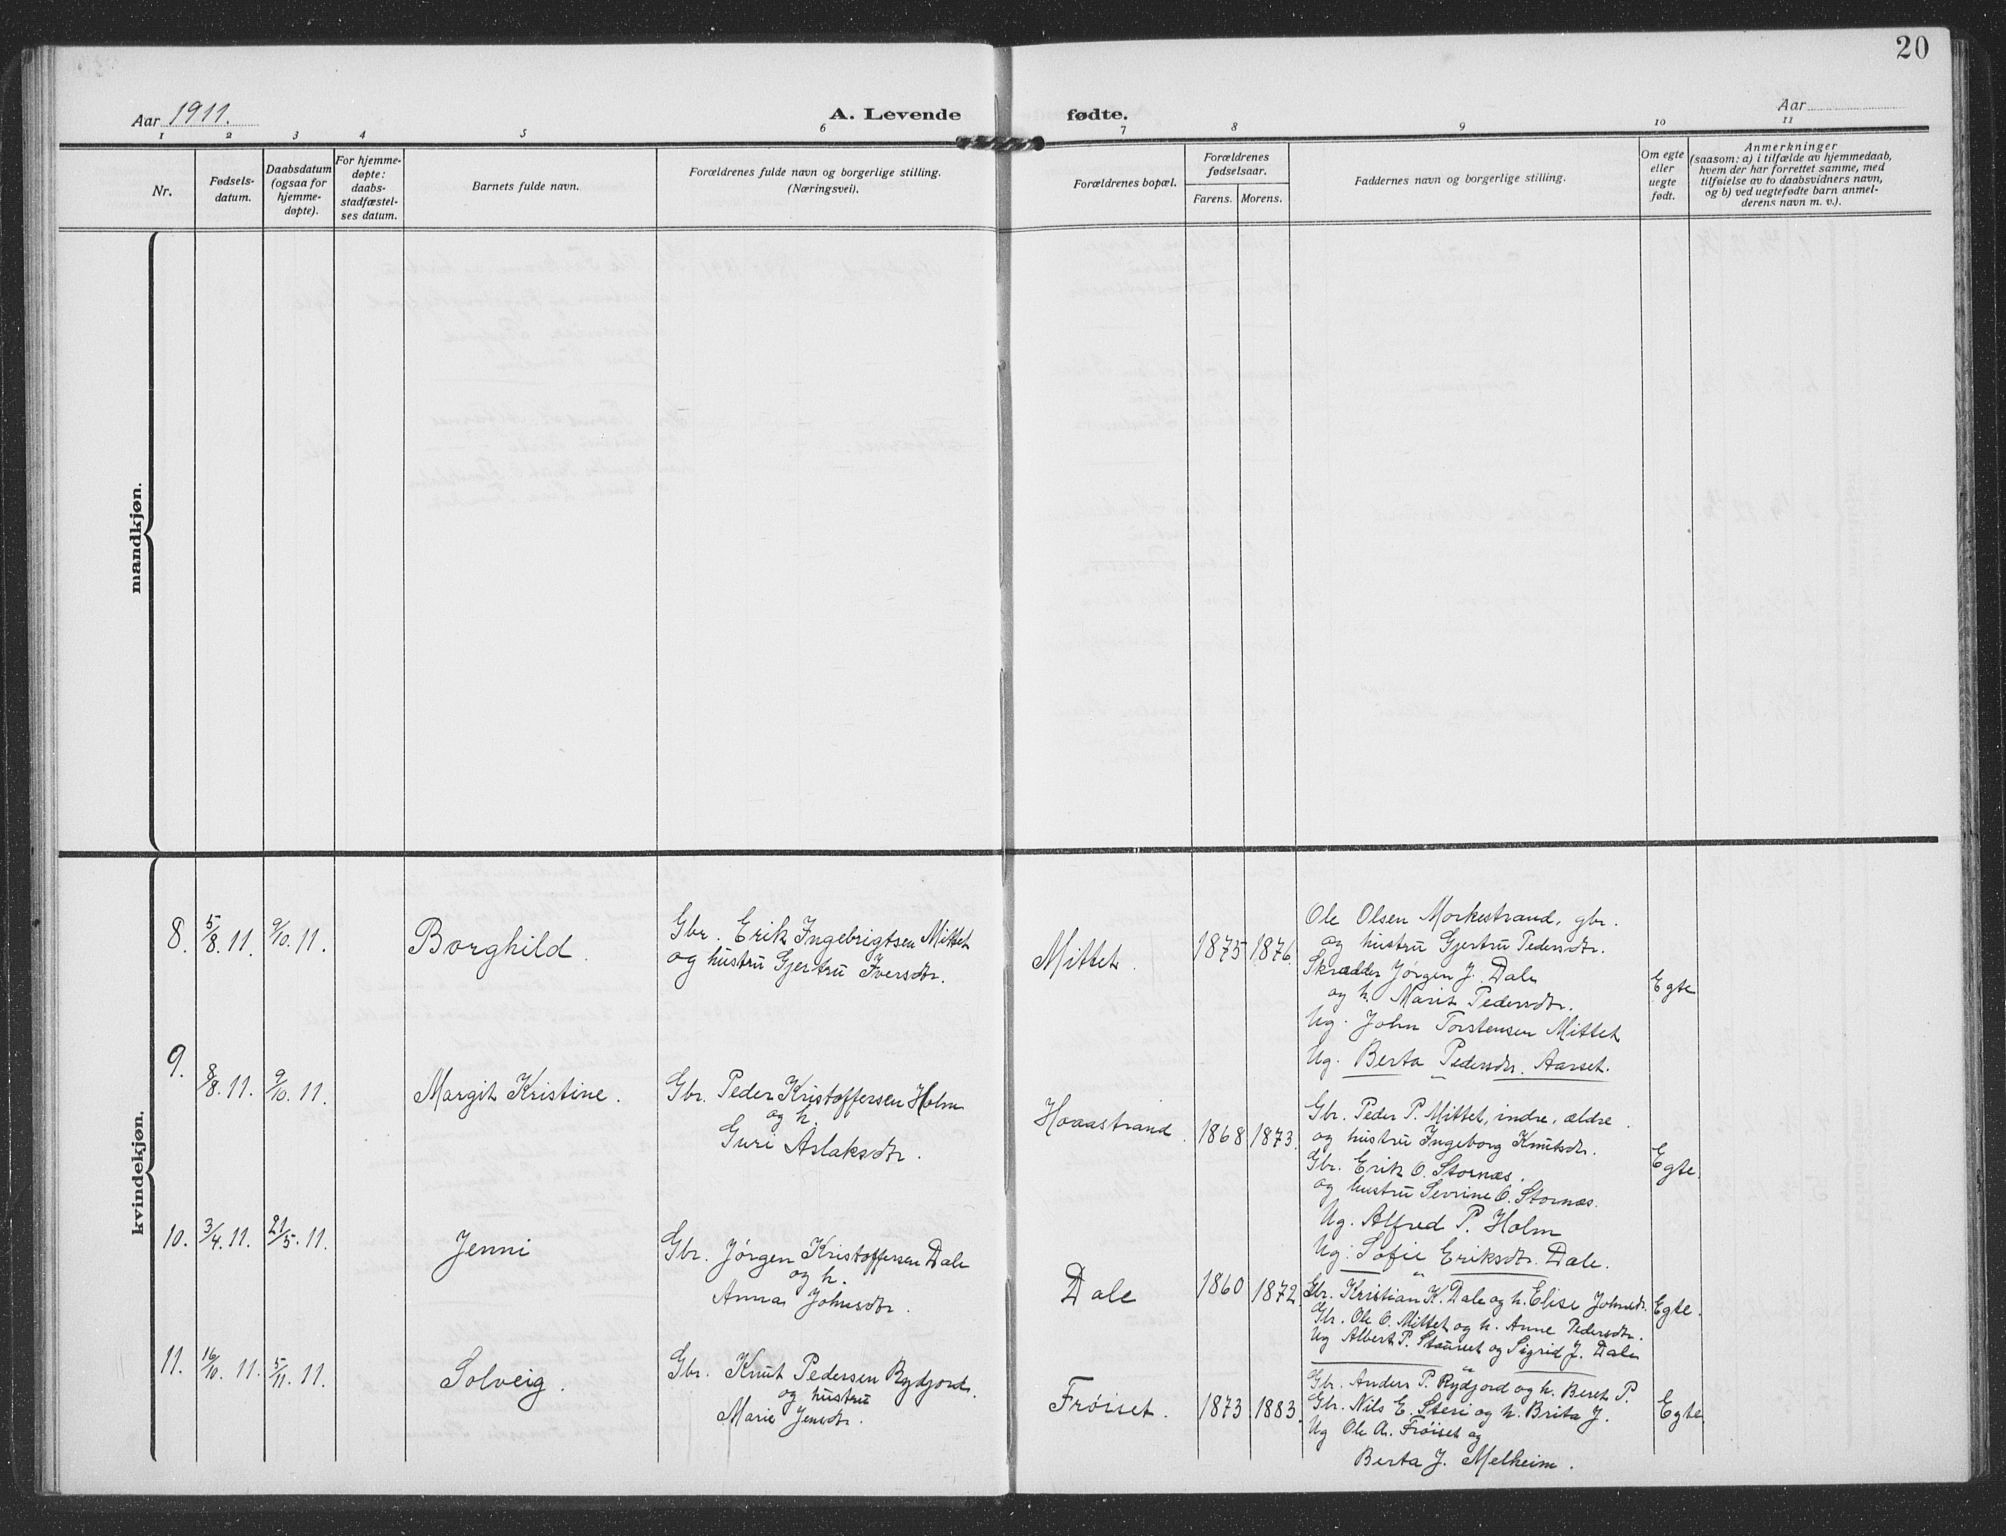 20
Aar 1911.
A. Levende fødte.
Aar
1 2 3 4 5 6 7 8 9 10 11
Nr.
Fødsels-
datum.
Daabsdatum
(ogsaa for
hjemme-
døpte).
For hjemme-
døpte:
daabs-
stadfæstel-
ses datum.
Barnets fulde navn.
Forældrenes fulde navn og borgerlige stilling.
(Næringsvei).
Forældrenes bopæl.
Forældrenes
fødselsaar.
Farens. Morens.
Faddernes navn og borgerlige stilling.
Om egte
eller
uegte
født.
Anmerkninger
(saasom: a) i tilfælde av hjemmedaab,
hvem der har forrettet samme, med
tilføielse av to daabsvidners navn,
og b) ved uegtefødte barn anmel-
derens navn m. v.).
mandkjøn.
kvindekjøn.
8. 5/8. 11. 9/10. 11. Borghild.
Gbr. Erik Ingebrigtsen Mittet
og hustru Gjertru Iversdtr.
Mittet. 1875 1876.
Ole Olsen Morkestrand, gbr.
og hustru Gjertru Pedersdtr.
Skrædder Jørgen J. Dale
og h. Marit Pedersdtr.
Ug. John Torstensen Mittet
Ug. Berta Pedersdtr. Aarset.
Egte
9. 8/8. 11. 9/10. 11. Margit Kristine.
Gbr. Peder Kristoffersen Holm
og h.
Guri Aslaksdtr.
Hovastrand. 1868 1873.
Gbr. Peder P. Mittet, indre, ældre.
og hustru Ingeborg Knutsdtr.
Gbr. Erik O. Stornæs.
og hustru Sevrine O. Stornæs.
Ug. Alfred P. Holm
Ug. Sofie Eriksdtr. Dale.
Egte.
10. 3/4. 11. 21/5. 11. Jenni
Gbr. Jørgen Kristoffersen Dale
og h.
Anna Johnsdtr.
Dale 1860 1872.
Gbr. Kristian K. Dale og h. Elise Johnsdtr.
Gbr. Ole O. Mittet og h. Anne Pedersdtr.
Ug Albert P. Stauset og Sigrid J. Dale
Egte.
11. 16/10. 11. 5/11. 11. Solveig.
Gbr. Knut Pedersen Rydjord.
og hustru
Marie Jensdtr.
Frøiset. 1873. 1883.
Gbr. Anders P. Rydjord og h. Beret P.
Gbr. Nils E. Steri og h. Brita J.
Ug Ole A. Frøiset og
Berta J. Melheim.
Egte.